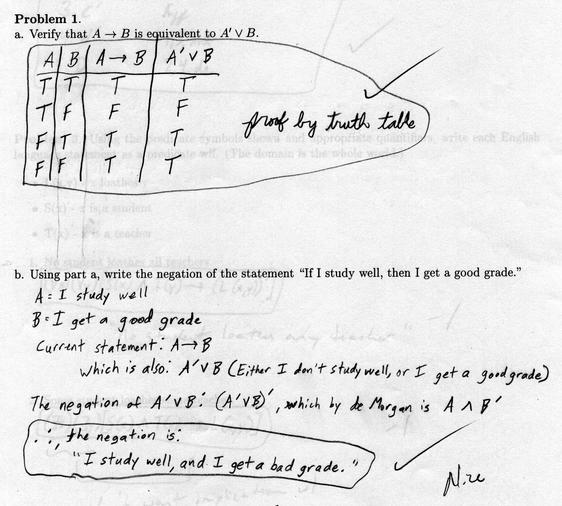 Problem 1.
a. Verify that A → B is equivalent to A′ ∨ B.
A B A → B A′ ∨ B
T T T T
T F F F
F T T T
F F T T
proof by truth table
b. Using part a, write the negation of the statement "If I study well, then I get a good grade."
A = I study well
B = I get a good grade
Current statement: A → B
which is also: A′ ∨ B (Either I don't study well, or I get a good grade)
The negation of A′ ∨ B: (A′ ∨ B)′, which by de Morgan is A ∧ B′
∴, the negation is:
"I study well, and I get a bad grade."
Nice